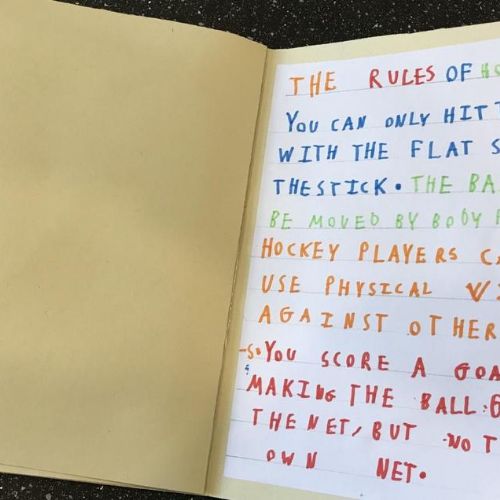 THE RULES OF HO
YOU CAN ONLY HIT T
WITH THE FLAT S
THE STICK. THE BA
BE MOVED BY BODY P
HOCKEY PLAYERS CA
USE PHYSICAL VI
AGAINST OTHER
-SO YOU SCORE A GOA
MAKING THE BALL G
THE NET, BUT NOT
OWN NET.